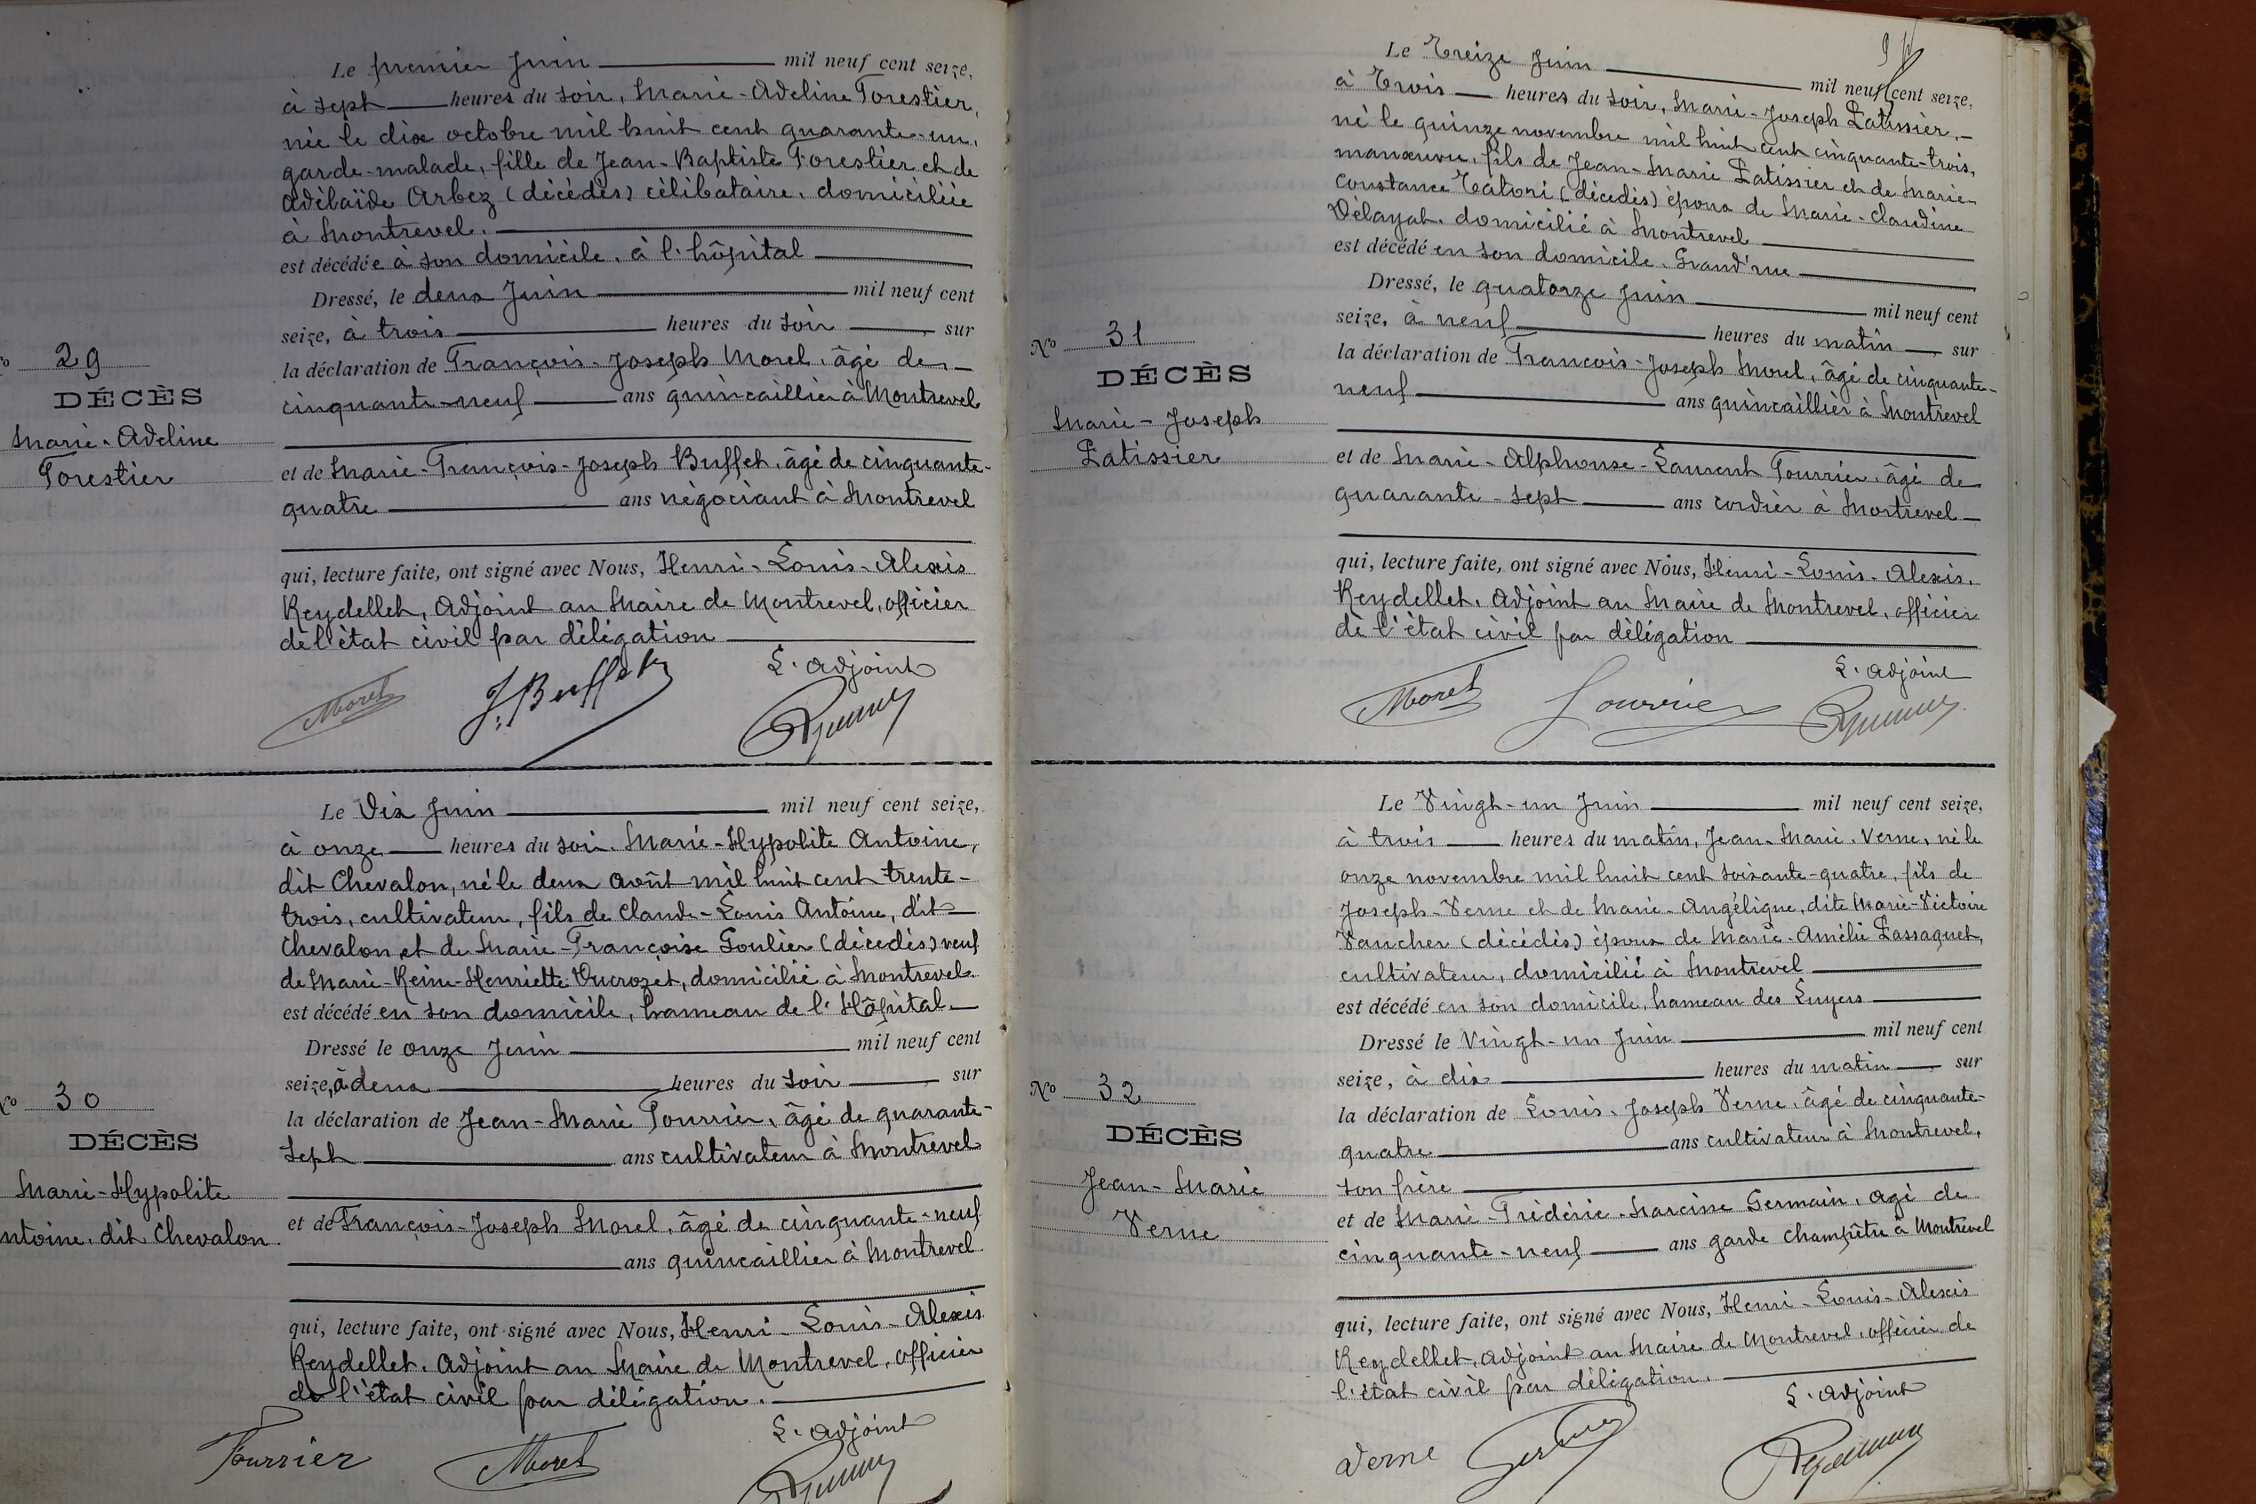 Le premier Juin mil neuf cent seize,
à sept heures du soir, Marie-Adeline Forestier,
née le dix octobre mil huit cent quarante-un,
garde-malade, fille de Jean-Baptiste Forestier et de
Adélaïde Arbez (décédés) célibataire, domiciliée
à Montrevel.
est décédée à son domicile, à l'hôpital
Dressé, le deux Juin mil neuf cent
seize, à trois heures du soir sur
la déclaration de François-Joseph Morel, âgé de
cinquante-neuf ans quincaillier à Montrevel
et de Marie-François-Joseph Buffet, âgé de cinquante-
quatre ans négociant à Montrevel
qui, lecture faite, ont signé avec Nous, Henri-Louis-Alexis
Reydellet, Adjoint au Maire de Montrevel, officier
de l'état civil par délégation
L'adjoint
Morel J. Buffet
No 29
DÉCÈS
Marie-Adeline
Forestier
Le Dix Juin mil neuf cent seize,
à onze heures du soir Marie-Hypolite Antoine,
dit Chevalon, né le deux août mil huit cent trente-
trois, cultivateur, fils de Claude-Louis Antoine, dit
Chevalon et de Marie-Françoise Goulier (décédés) veuf
de Marie-Reine-Henriette Ducrozet, domicilié à Montrevel
est décédé en son domicile, hameau de l'Hôpital
Dressé le onze Juin mil neuf cent
seize, à deux heures du soir sur
la déclaration de Jean-Marie Fourrier, âgé de quarante-
sept ans cultivateur à Montrevel
et de François-Joseph Morel, âgé de cinquante-neuf
ans quincaillier à Montrevel
qui, lecture faite, ont signé avec Nous, Henri-Louis-Alexis
Reydellet, Adjoint au Maire de Montrevel, officier
de l'état civil par délégation.
L'adjoint
Fourrier Morel
No 30
DÉCÈS
Marie-Hypolite
ntoine, dit Chevalon
Le Treize Juin mil neuf cent seize,
à Trois heures du soir, Marie-Joseph Patissier,
né le quinze novembre mil huit cent cinquante-trois,
manœuvre, fils de Jean-Marie Patissier et de Marie-
Constance Catoni (décédés) époux de Marie-Claudine
Délayat, domicilié à Montrevel
est décédé en son domicile, Grand'rue
Dressé, le quatorze Juin mil neuf cent
seize, à neuf heures du matin sur
la déclaration de François-Joseph Morel, âgé de cinquante-
neuf ans quincaillier à Montrevel
et de Marie-Alphonse-Laurent Fourrier, âgé de
quarante-sept ans cordier à Montrevel
qui, lecture faite, ont signé avec Nous, Henri-Louis-Alexis
Reydellet, Adjoint au Maire de Montrevel, officier
de l'état civil par délégation
L'adjoint
Morel Fourrier
No 31
DÉCÈS
Marie-Joseph
Patissier
Le Vingt-un Juin mil neuf cent seize,
à trois heures du matin, Jean-Marie Verne, né le
onze novembre mil huit cent soixante-quatre, fils de
Joseph Verne et de Marie-Angélique, dite Marie-Victoire
Vaucher (décédés) époux de Marie-Amélie Passaquet,
cultivateur, domicilié à Montrevel
est décédé en son domicile, hameau des Luyers
Dressé le Vingt-un Juin mil neuf cent
seize, à dix heures du matin sur
la déclaration de Louis-Joseph Verne, âgé de cinquante-
quatre ans cultivateur à Montrevel,
son frère
et de Marie-Frédéric-Narcisse Germain, agé de
cinquante-neuf ans garde champêtre à Montrevel
qui, lecture faite, ont signé avec Nous, Henri-Louis-Alexis
Reydellet, adjoint au Maire de Montrevel, officier de
l'état civil par délégation.
L'adjoint
Verne
No 32
DÉCÈS
Jean-Marie
Verne